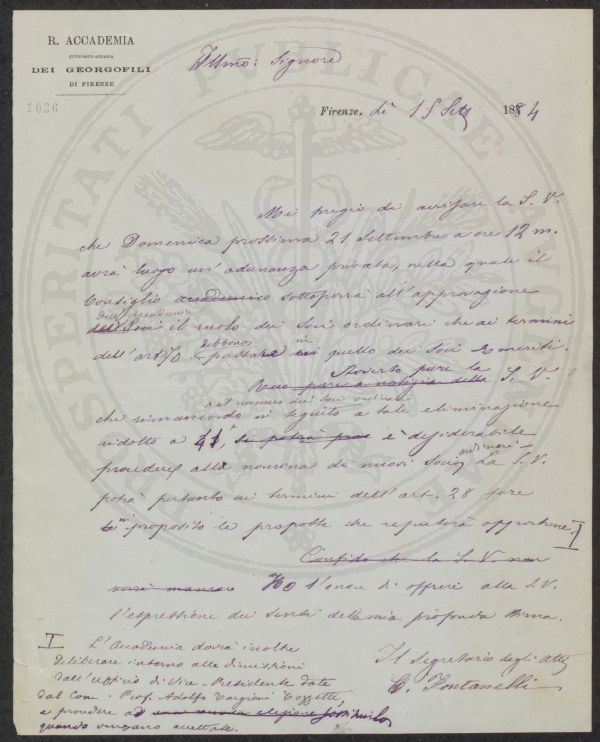 R. ACCADEMIA
ECONOMICO-AGRARIA
DEI GEORGOFILI
DI FIRENZE
1036
Illmo: Signore
Firenze, dì 15 Sett 1884
Mi pregio di avvisare la S. V.
che Domenica prossima 21 Settembre a ore 12 m.
avrà luogo un'adunanza privata, nella quale il
Consiglio accademico sottoporrà all'approvazione
dell'Accademia
il ruolo dei Soci ordinari che ai termini
debbono in
dell'art. passare quello dei Soci Emeriti.
Avverto pure la
S. V.
e il numero dei Soci ordinari
che rimanendo in seguito a tale eliminazione
ridotto a 41, è desiderabile
ordinari
procedere alla nomina di nuovi Soci La S. V.
potrà pertanto ai termini dell'art. 28 fare
proposito le proposte che reputerà opportune. I
Confido che la S. V. non
vorrà mancare Ho l'onore di offrire alla S. V.
l'espressione dei sensi della mia profonda stima.
I L'Accademia dovrà inoltre
deliberare intorno alle dimissioni
dall'ufficio di Vice-Presidente date
dal Com. Prof. Adolfo Targioni Tozzetti,
e procedere ad una nuova elezione
quando vengano accettate.
Il Segretario degli Atti
C. Fontanelli
PROSPERITATI PUBLICAE